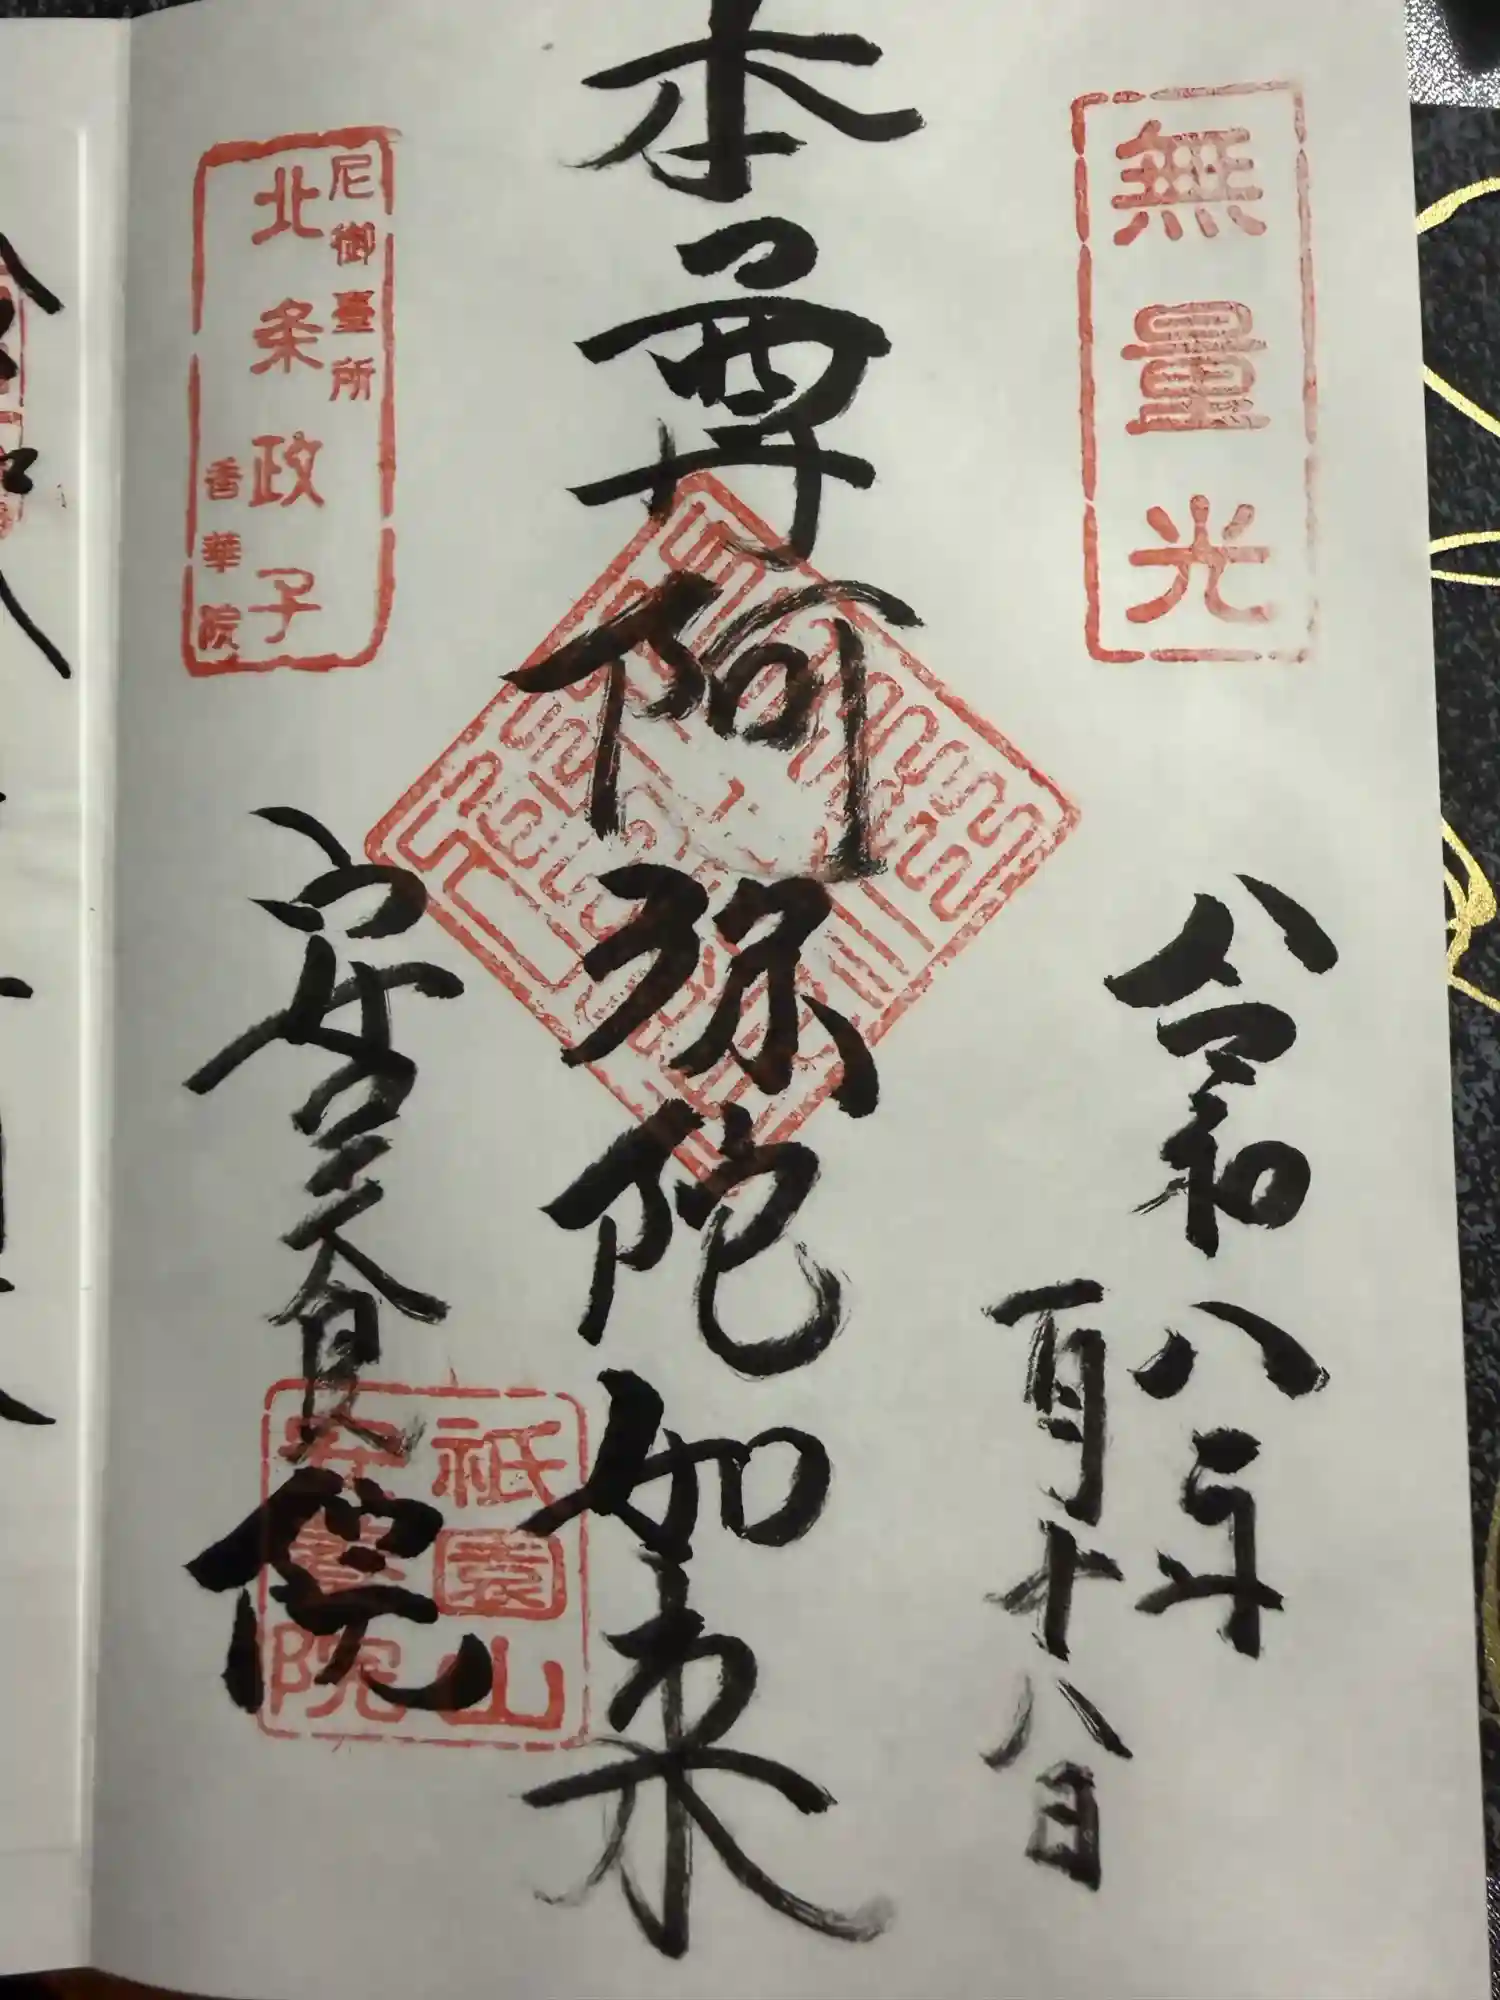 無量光
令和八年
一月十八日
本尊阿弥陀如来
尼御臺所
北条政子
香華院
安養院
祇園山
安養院